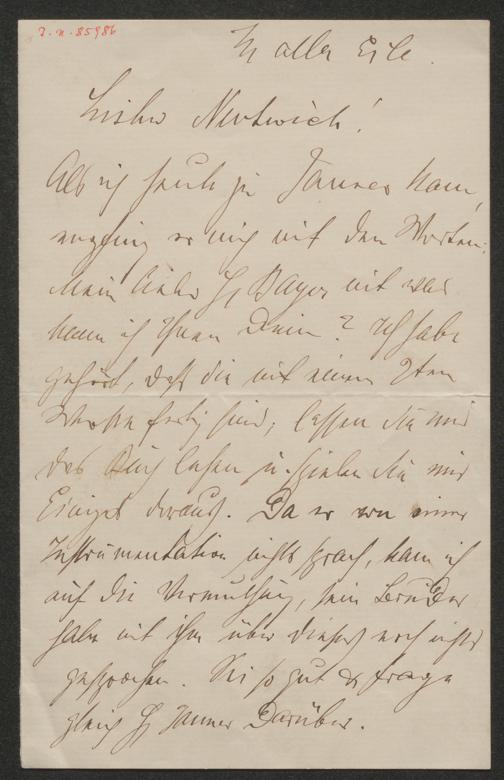 J. N. 85986
In aller Eile.
Lieber Nentwich!
Als ich heute zu Jauner kam,
empfing er mich mit den Worten:
Mein lieber H Bayer mit was
kann ich Ihnen dienen? Ich habe
gehört, daß Sie mit einem 2ten
Werke fertig sind, lassen Sie mir
das Buch lesen u. spielen Sie mir
Einiges daraus. Da er von einer
Instrumentation nichts sprach, kam ich
auf die Vermuthung, sein Bruder
habe mit ihm über dieses noch nichts
gesprochen. Sei so gut & frage
gleich H Jauner darüber.